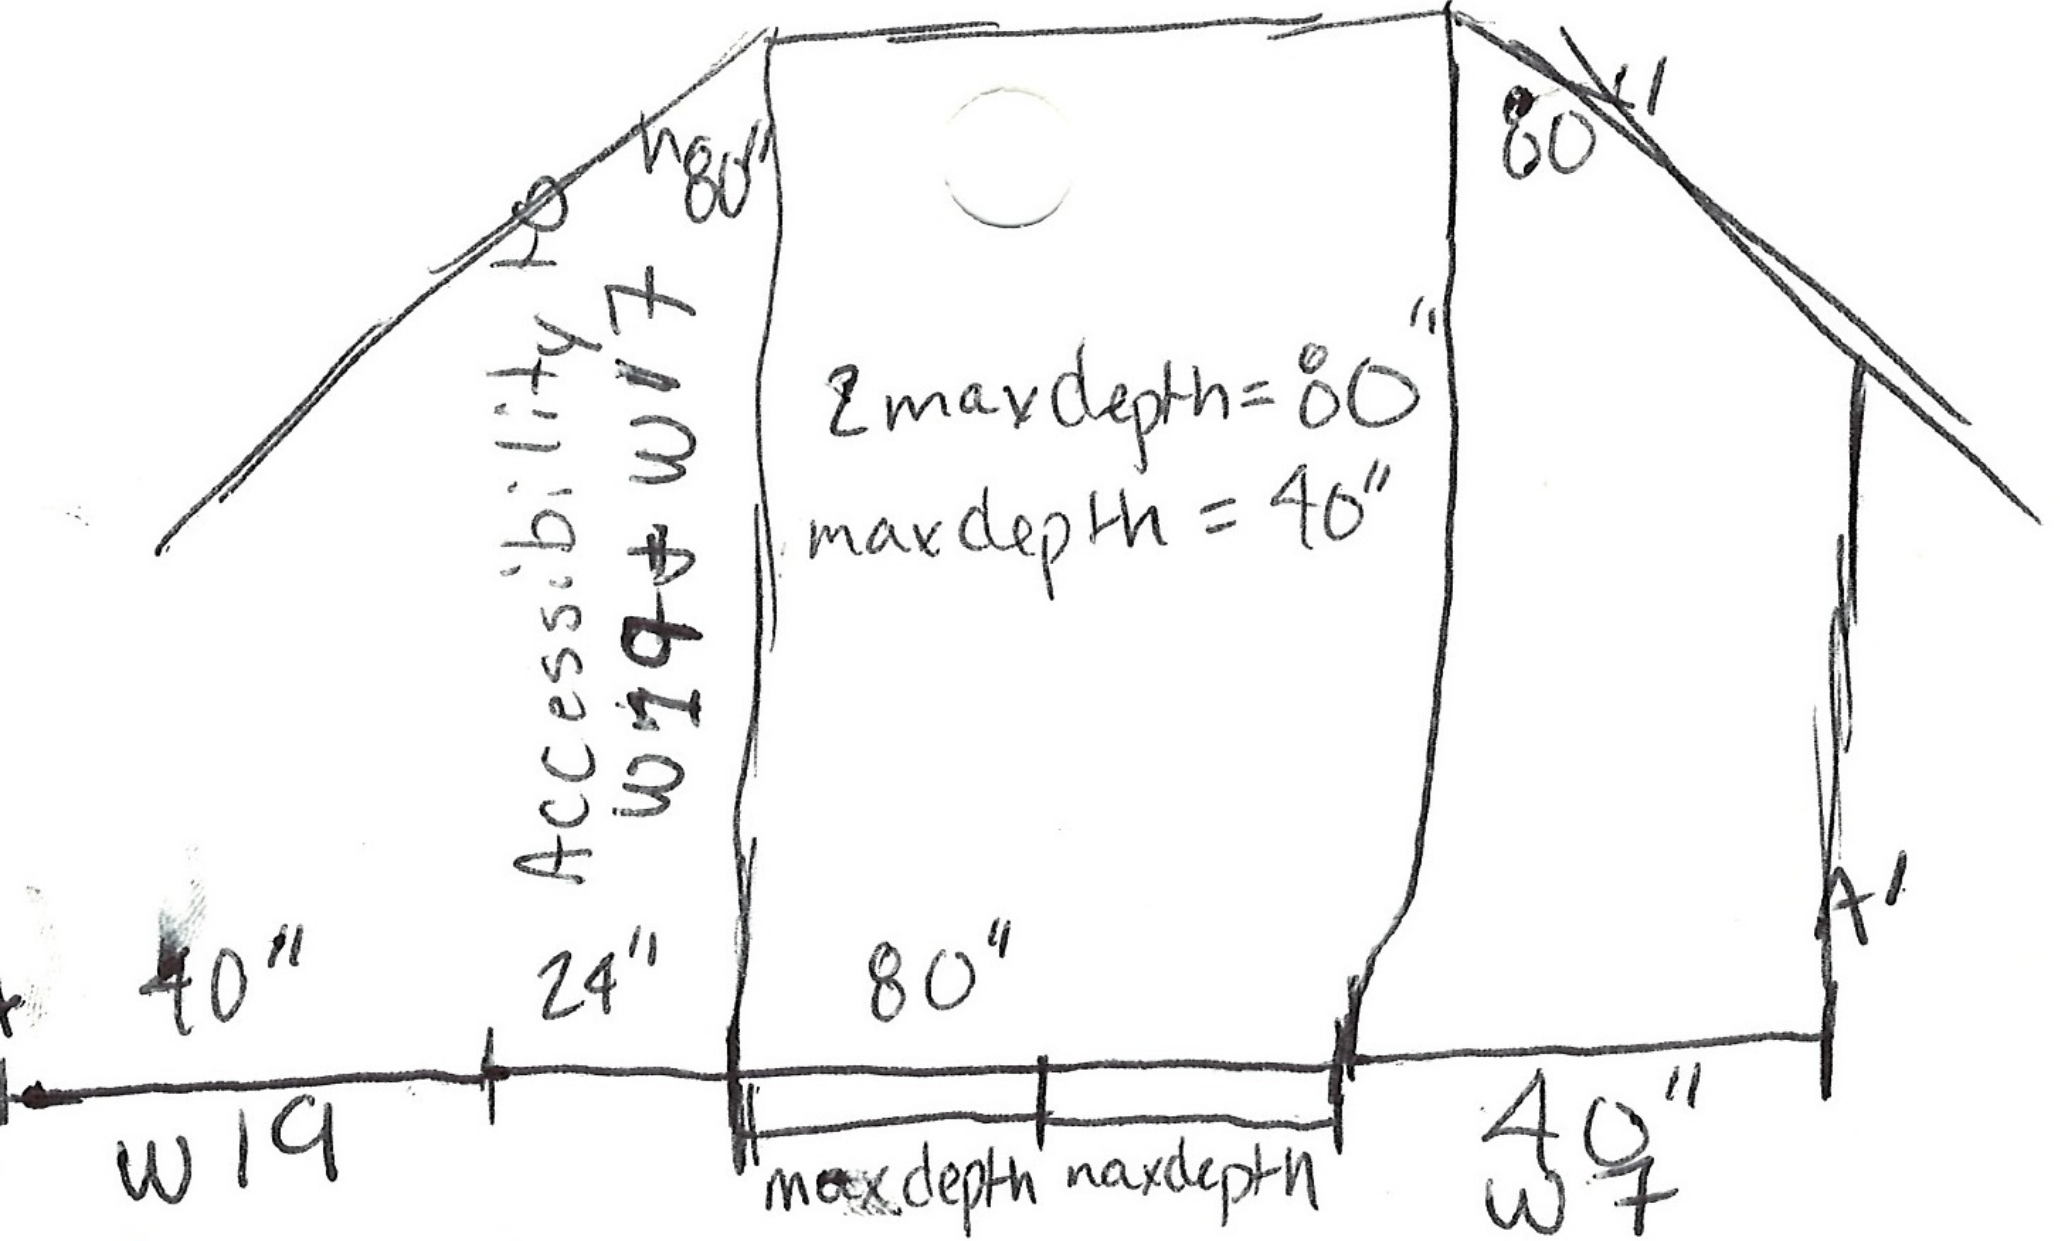 80"
80
Accessibility to
W19 & W17
2maxdepth=80"
maxdepth = 40"
40"
24"
80"
W19
maxdepth
naxdepth
40"
W7